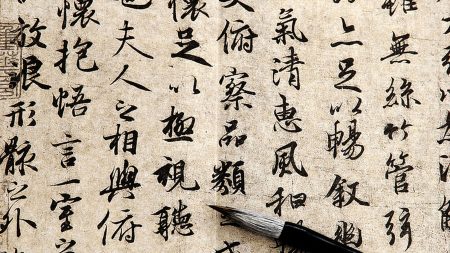 以為流
雖無絲竹管弦
亦足以暢敘幽
氣清惠風和
大俯察品類
懷足以極視聽
也夫人之相與俯
懷抱悟言一室之
放浪形骸之外